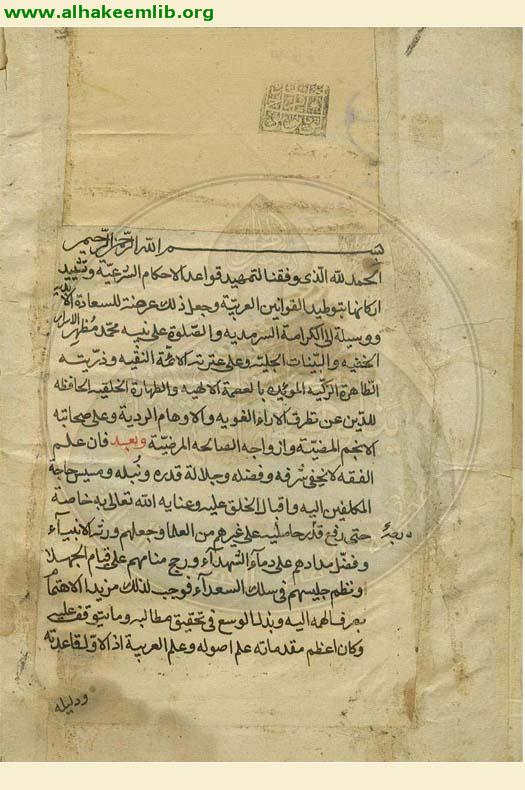 www.alhakeemlib.org
بسم الله الرحمن الرحيم
الحمد لله الذى وفقنا لتمهيد قواعد الاحكام الشرعية وتشييد
اركانها بتوطيد القوانين العربية وجعل ذلك عرضة للسعادة الابدية
ووسيلة الى الكرامة السرمديه والصلوة على نبيه محمد مظهر الاسرار
الخفيه والبينات الجليه وعلى عترته الائمة النقيه وذريته
الطاهرة الزكيه المؤيده بالعصمة الالهيه والطهارة الخلقيه الحافظه
للدين عن تطرق الاراء الغويه والاوهام الردية وعلى صحابته
الانجم المضيئة وازواجه الصالحه المرضية وبعد فان علم
الفقه لا يخفى شرفه وفضله وجلالة قدره ونبله ومسيس حاجة
المكلفين اليه واقبال الخلق عليه وعنايه الله تعالى به خاصة
حتى رفع قدر حامليه على غيرهم من العلماء وجعلهم ورثه الانبياء
درجة
وفضل مدادهم على دماء الشهداء ورجح منامهم على قيام الجهلا
ونظم جليسهم فى سلك السعداء فوجب لذلك مزيد الاهتمام
بصرف الهمه اليه وبذل الوسع فى تحقيق مطالبه وما يتوقف عليه
وكان اعظم مقدماته علم اصوله وعلم العربية اذ الاول قاعدته
ودليله